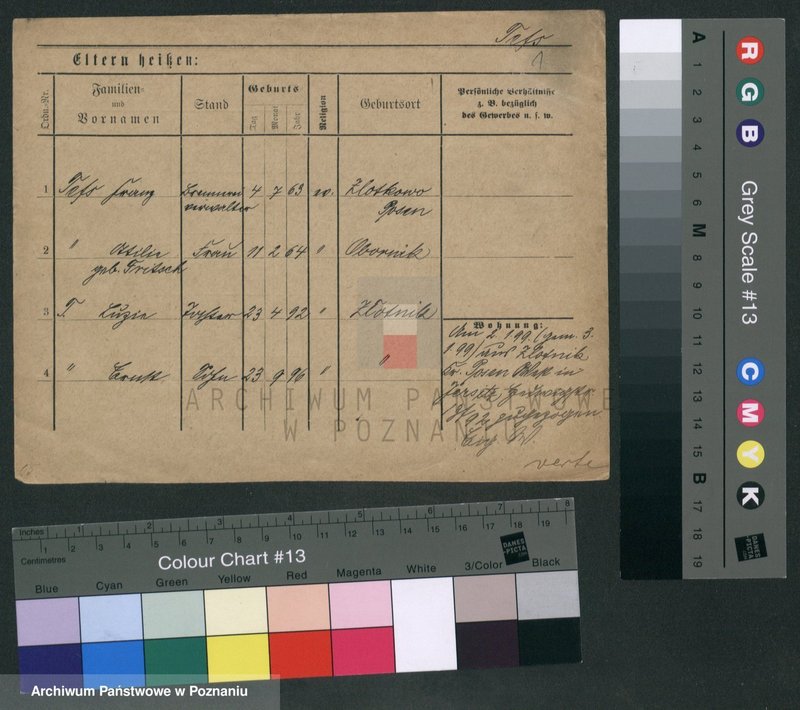 Tefs
1
Eltern heißen:
Ordn.-Nr.
Familien-
und
Vornamen
Stand
Geburts
Tag
Monat
Jahr
Religion
Geburtsort
Persönliche Verhältnisse
z. B. bezüglich
des Gewerbes u. s. w.
1 Tefs Franz 4 7 63 ev. Zlotkowo
verwalter Posen
2 " Ottilie Frau 11 2 64 " Obornik
geb. Fritsch
3 T. Luzie Tochter 23 4 92 " Zlotnik
4 " Ernst Sohn 23 9 96 " "
Wohnung:
Am 2 1 99 (gem. 3.
1 99) aus Zlotnik
Kr. Posen in
Jersitz
92 zugezogen
verte
ARCHIWUM PAŃSTWOWE
W POZNANIU
A 1 2 3 4 5 6 M 8 9 10 11 12 13 14 15 B 17 18 19
R G B
Grey Scale #13
C M Y K
DANES
-PICTA
.COM
Inches 1 2 3 4 5 6 7 8
Centimetres 1 2 3 4 5 6 7 8 9 10 11 12 13 14 15 16 17 18 19
Colour Chart #13
DANES
-PICTA
.COM
Blue Cyan Green Yellow Red Magenta White 3/Color Black
Archiwum Państwowe w Poznaniu